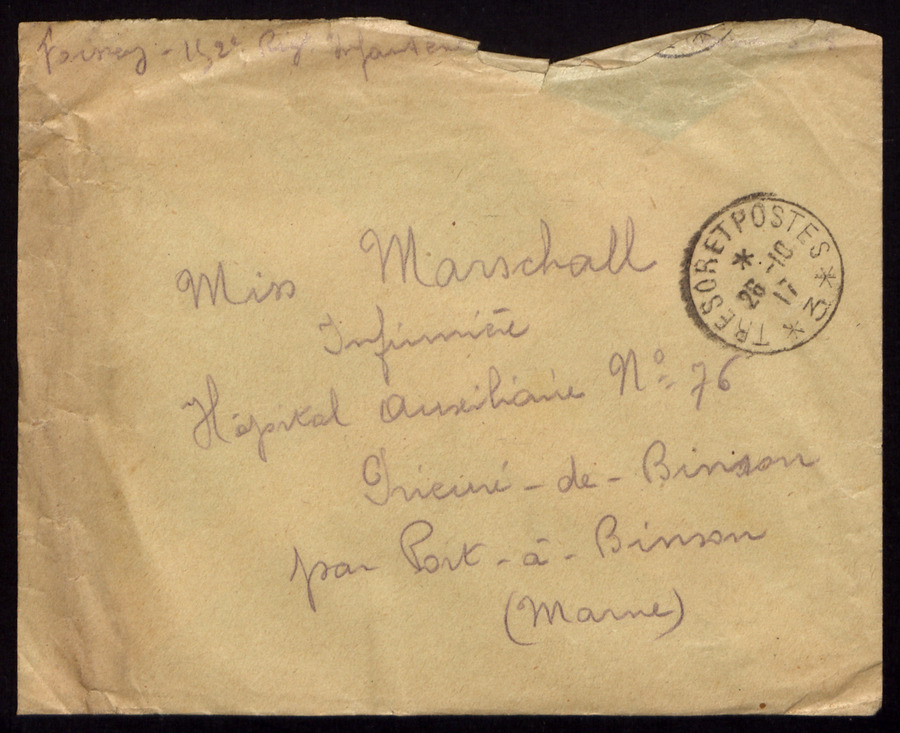 Infanterie
Miss Marschall
Infirmière
Hôpital Auxiliaire No 76
Prieuré-de-Binson
par Port-à-Binson
(Marne)
TRESOR ET POSTES * *
* 26-10
17